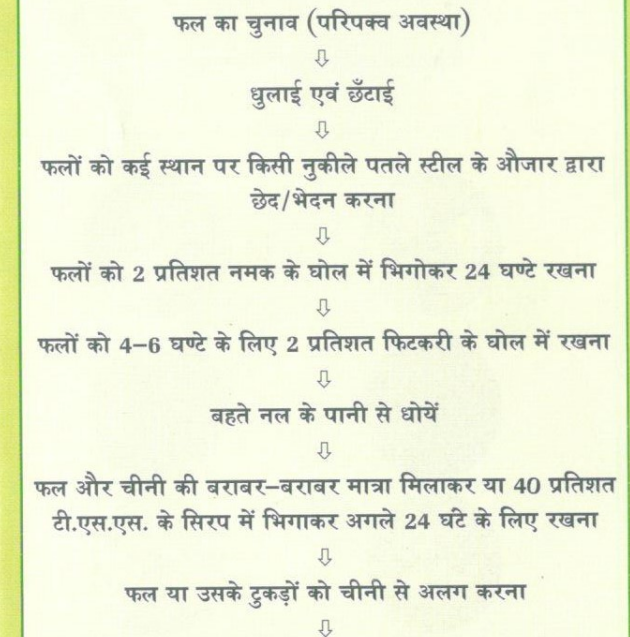 फल का चुनाव (परिपक्व अवस्था)
⇩
धुलाई एवं छँटाई
⇩
फलों को कई स्थान पर किसी नुकीले पतले स्टील के औजार द्वारा
छेद/भेदन करना
⇩
फलों को 2 प्रतिशत नमक के घोल में भिगोकर 24 घण्टे रखना
⇩
फलों को 4–6 घण्टे के लिए 2 प्रतिशत फिटकरी के घोल में रखना
⇩
बहते नल के पानी से धोयें
⇩
फल और चीनी की बराबर–बराबर मात्रा मिलाकर या 40 प्रतिशत
टी.एस.एस. के सिरप में भिगाकर अगले 24 घंटे के लिए रखना
⇩
फल या उसके टुकड़ों को चीनी से अलग करना
⇩